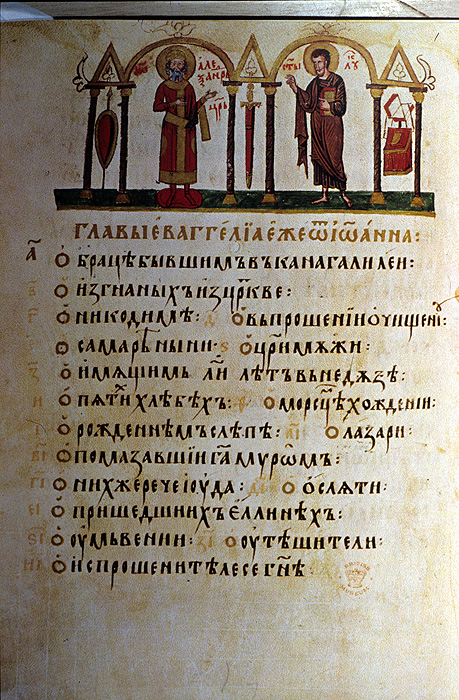 АЛЕ
ЦРЬ
ГЛАВЫ ЕВАГГЕЛІА ЕЖЕ Ѿ ІѠАННА:
а҃ О брацѣ бывшимъ въ кана галилеи:
О изгнаныхъ из цр҃кве:
О никодимѣ: д О въпрошени и о очищени:
О самарѣныни· ѕ О цр҃и мѫжи:
О имѧщимъ л҃и лѣтъ въ недѫѕѣ:
О пѧти хлѣбехъ: О морстѣ хождении:
О рожденнѣмъ слѣпѣ: О лазари:
О помазавшии г҃а мурѡмъ:
О нихже рече іоуда: О ослѧти:
О пришедшиихъ еллинѣхъ:
О умъвении: О утѣшители:
О испрошени телесе гн҃ѣ: